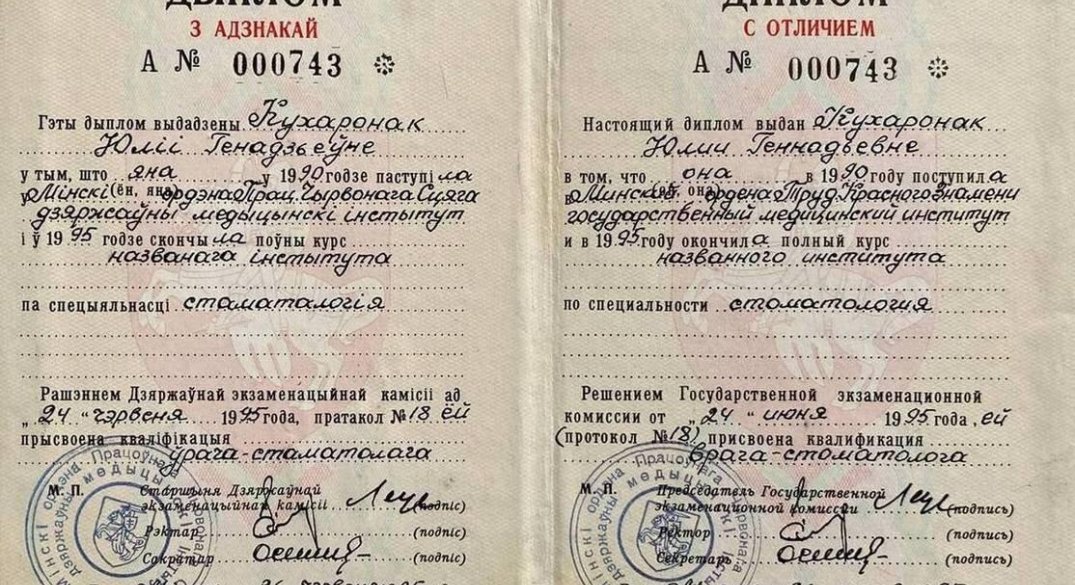 ДЫПЛОМ
З АДЗНАКАЙ
А № 000743
Гэты дыплом выдадзены Кухаронак
Юліі Генадзьеўне
у тым, што яна у 1990 годзе паступіла
у Мінскі (ён, яна) ордэна Прац. Чырвонага Сцяга
дзяржаўны медыцынскі інстытут
і ў 1995 годзе скончыла поўны курс
названага інстытута
па спецыяльнасці стаматалогія
Рашэннем Дзяржаўнай экзаменацыйнай камісіі ад
„24“ чэрвеня 1995 года, пратакол № 18 ёй
прысвоена кваліфікацыя
ўрача-стаматолага
М. П. Старшыня Дзяржаўнай
экзаменацыйнай камісіі (подпіс)
Рэктар (подпіс)
Сакратар (подпіс)
ДИПЛОМ
С ОТЛИЧИЕМ
А № 000743
Настоящий диплом выдан Кухаронак
Юлии Геннадьевне
в том, что она в 1990 году поступила
в Минский (он, она) ордена Труд. Красного Знамени
государственный медицинский институт
и в 1995 году окончила полный курс
названного института
по специальности стоматология
Решением Государственной экзаменационной
комиссии от „24“ июня 1995 года, ей
(протокол № 18) присвоена квалификация
врача-стоматолога
М. П. Председатель Государственной
экзаменационной комиссии (подпись)
Ректор (подпись)
Секретарь (подпись)